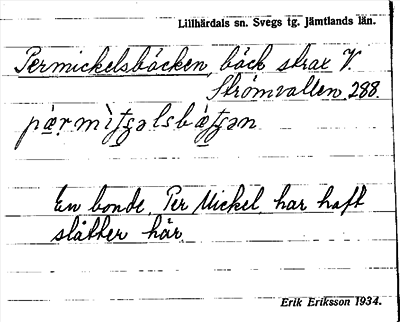 Lillhärdals sn. Svegs tg. Jämtlands län.
Permickelsbäcken, bäck strax V.
Strömvallen 288.
pæ̀rmìt̯ʂəlsbæ̀t̯ʂən
En bonde, Per Mickel, har haft
slåtter här.
Erik Eriksson 1934.